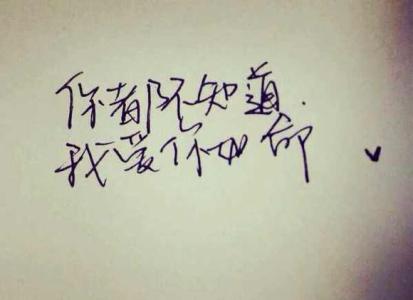 你都不知道.
我爱你如命